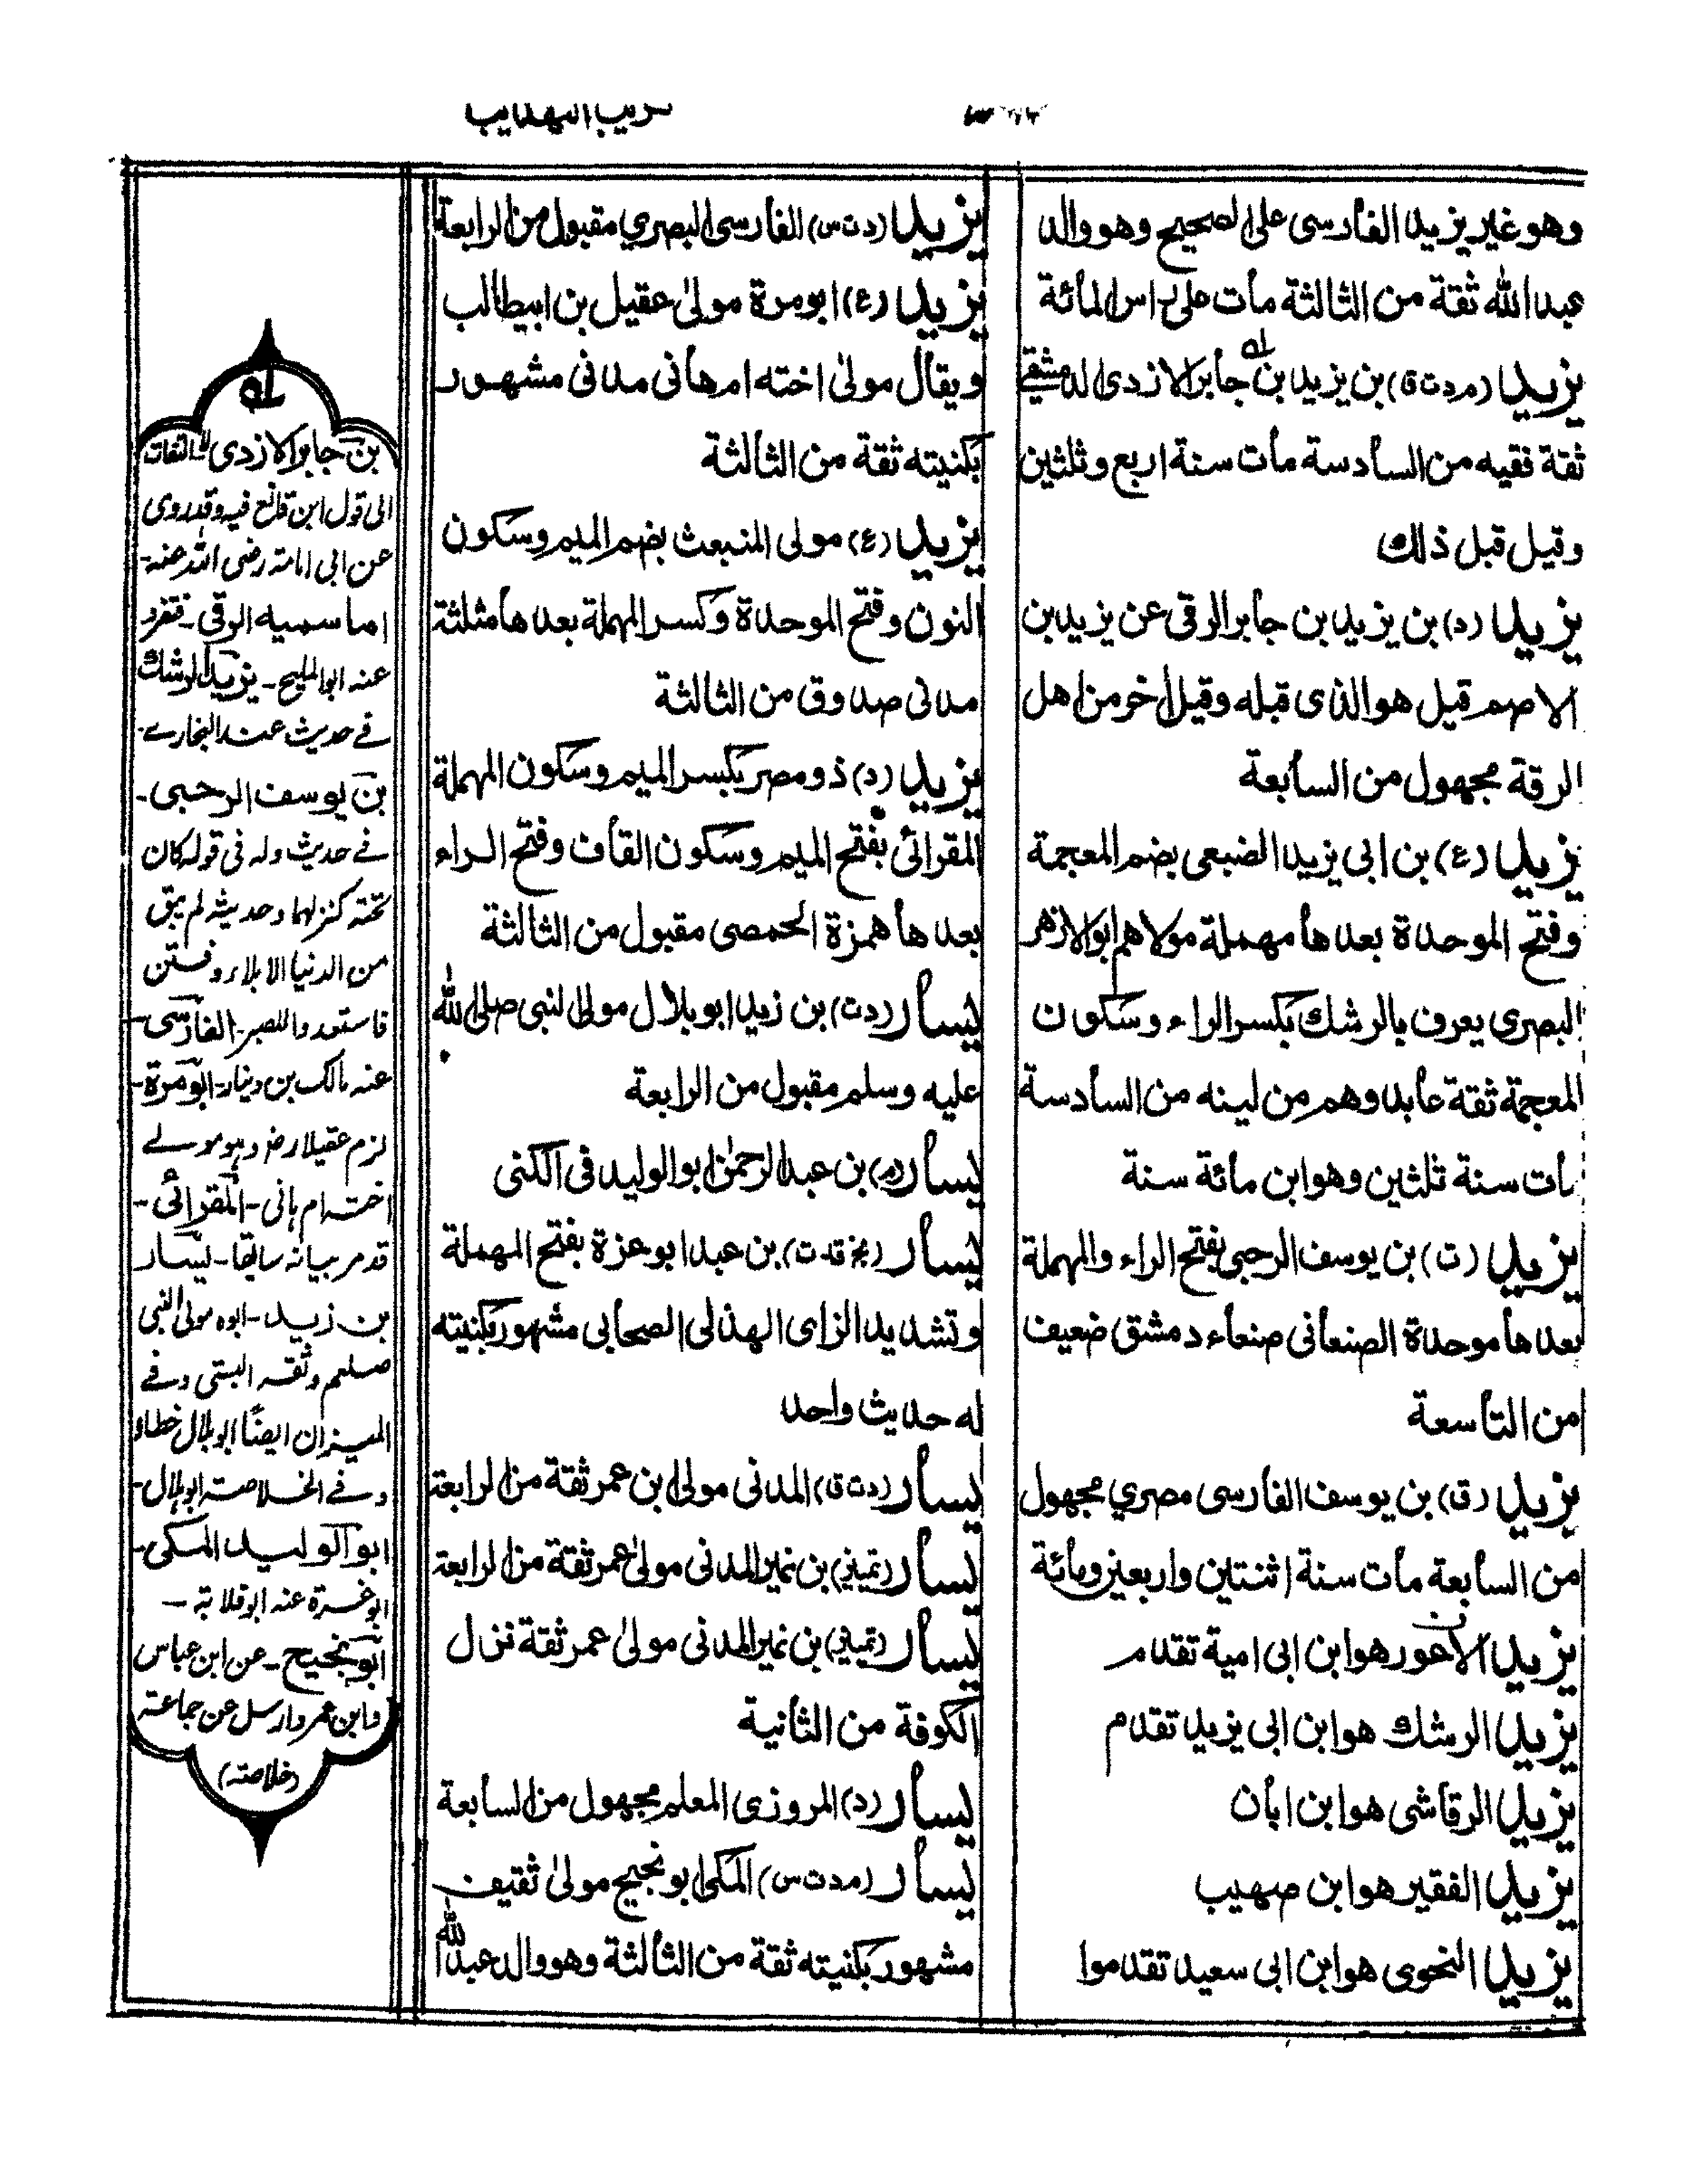 تقريب التهذيب
وهو غير يزيد الفارسى على الصحيح وهو والد
عبد الله ثقة من الثالثة مات على راس المائة
يزيد (م د ت ق) بن يزيد بن جابر الازدى الدمشقى
ثقة فقيه من السادسة مات سنة اربع وثلثين
وقيل قبل ذلك
يزيد (د) بن يزيد بن جابر الرقى عن يزيد بن
الاصم قيل هو الذى قبله وقيل اخر من اهل
الرقة مجهول من السابعة
يزيد (ع) بن ابى يزيد الضبعى بضم المعجمة
وفتح الموحدة بعدها مهملة مولاهم ابو الازهر
البصرى يعرف بالرشك بكسر الراء وسكون
المعجمة ثقة عابد وهم من لينه من السادسة
مات سنة ثلثين وهو ابن مائة سنة
يزيد (ت) بن يوسف الرحبى بفتح الراء والمهملة
بعدها موحدة الصنعانى صنعاء دمشق ضعيف
من التاسعة
يزيد (ق) بن يوسف الفارسى مصري مجهول
من السابعة مات سنة اثنتين واربعين ومائة
يزيد الاعور هو ابن ابى امية تقدم
يزيد الرشك هو ابن ابى يزيد تقدم
يزيد الرقاشى هو ابن ابان
يزيد الفقير هو ابن صهيب
يزيد النحوى هو ابن ابى سعيد تقدموا
يزيد (د ت س) الفارسى البصري مقبول من الرابعة
يزيد (ع) ابو مرة مولى عقيل بن ابيطالب
ويقال مولى اخته ام هانى مدنى مشهور
بكنيته ثقة من الثالثة
يزيد (ع) مولى المنبعث بضم الميم وسكون
النون وفتح الموحدة وكسر المهملة بعدها مثلثة
مدنى صدوق من الثالثة
يزيد (د) ذو مصر بكسر الميم وسكون المهملة
المقرائى بفتح الميم وسكون القاف وفتح الراء
بعدها همزة الحمصى مقبول من الثالثة
يسار (د ت) بن زيد ابو بلال مولى النبى صلى الله
عليه وسلم مقبول من الرابعة
يسار (م) بن عبد الرحمن ابو الوليد فى الكنى
يسار (بخ قد ت) بن عبد ابو عزة بفتح المهملة
وتشديد الزاى الهذلى الصحابى مشهور بكنيته
له حديث واحد
يسار (د ت ق) المدنى مولى ابن عمر ثقة من الرابعة
يسار (تمييز) بن نمير المدنى مولى عمر ثقة من الرابعة
يسار (تمييز) بن نمير المدنى مولى عمر ثقة نزل
الكوفة من الثانية
يسار (د) المروزى المعلم مجهول من السابعة
يسار (م د ت س) المكى ابو نجيح مولى ثقيف
مشهور بكنيته ثقة من الثالثة وهو والد عبد الله
له
بن جابر الازدى لا التفات
الى قول ابن قانع فيه وقد روى
عن ابى امامة رضى الله عنه -
اما سميه الرقى - فتفرد
عنه ابو المليح - يزيد الرشك
فے حديث عند البخارے -
بن يوسف الرحبى -
فے حديث وله فى قوله كان
تحته كنز لهما وحديثه لم يبق
من الدنيا الا بلاء وفتن
فاستعدوا للصبر - الفارسى -
عنه مالك بن دينار - ابو مرة -
لزم عقيلا رض وهو مولے
اخته ام هانى - المقرائى -
قد مر بيانه سابقا - يسار
بن زيد - ابوه مولى النبى
صلعم وثقه البستى وفے
الميزان ايضا ابو بلال خطاء
وفے الخلاصة ابو هلال -
ابو الوليد المكى -
ابو عزة عنه ابو قلابة -
ابو نجيح - عن ابن عباس
وابن عمر وارسل عن جماعة
(خلاصة)